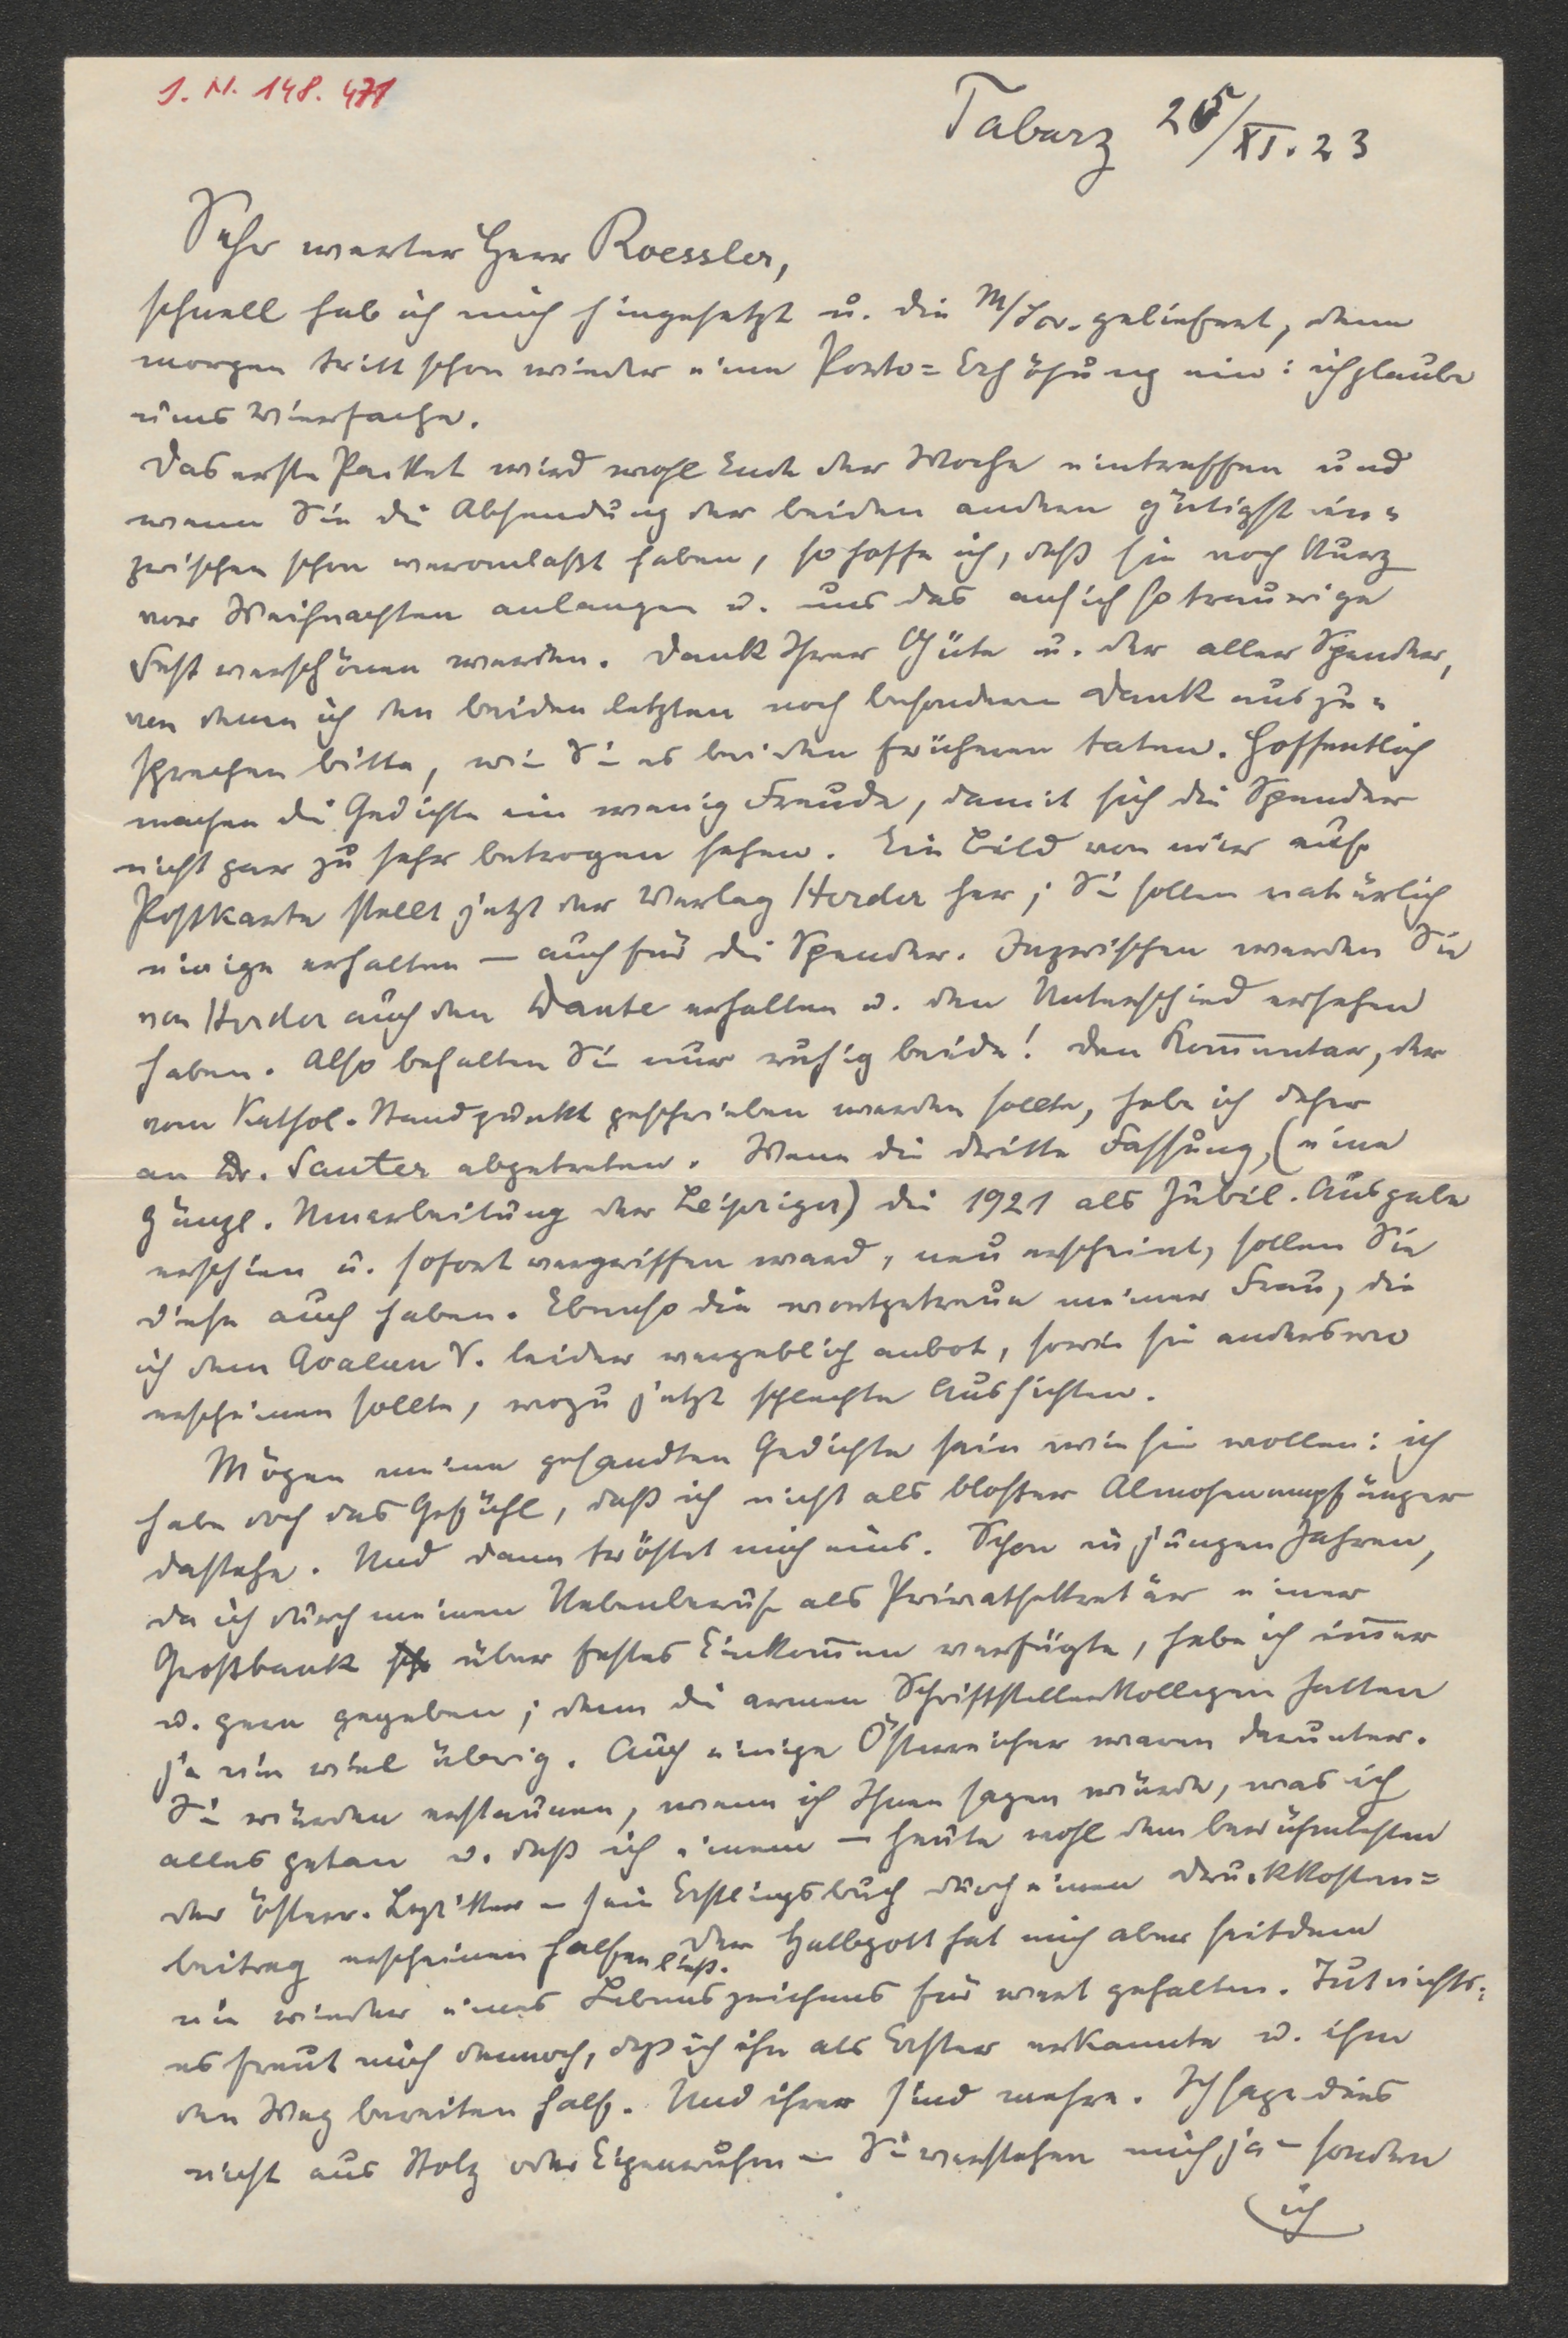 I. N. 148.471
Tabarz 25/XI. 23
Sehr werter Herr Roessler,
schnell hab ich mich hingesetzt u. die geliefert, denn
morgen tritt schon wieder eine Porto=Erhöhung ein: ich glaube
ums Vierfache.
Das erste Packet wird wohl Ende der Woche eintreffen und
wenn Sie die Absendung der beiden andern gütigst in=
zwischen schon veranlaßt haben, so hoffe ich, daß sie noch kurz
vor Weihnachten anlangen u. uns das ansich so traurige
Fest verschönen werden. Dank Ihrer Güte u. der aller Spender,
von denen ich den beiden letzten noch besonderen Dank auszu=
sprechen bitte, wie Sie es bei den früheren taten. Hoffentlich
machen die Gedichte ein wenig Freude, damit sich die Spender
nicht gar zu sehr betrogen sehen. Ein Bild von mir auf
Postkarte stellt jetzt der Verlag Herder her; Sie sollen natürlich
einige erhalten — auch für die Spender. Inzwischen werden Sie
von Herder auch den Dante erhalten u. den Unterschied ersehen
haben. Also behalten Sie nur ruhig beide! Den Kom̅entar, der
vom Kathol. Standpunkt geschrieben werden sollte, habe ich daher
an Dr. Sauter abgetreten. Wenn die dritte Fassung, (eine
gänzl. Neuarbeitung der Leipziger) die 1921 als Jubil. Ausgabe
erschien u. sofort vergriffen ward, neu erscheint, sollen Sie
diese auch haben. Ebenso die wortgetreue meiner Frau, die
ich dem Avalun V. leider vergeblich anbot, sowie sie anderswo
erscheinen sollte, wozu jetzt schlechte Aussichten.
Mögen meine gesandten Gedichte sein wie sie wollen: ich
habe doch das Gefühl, daß ich nicht als bloßer Almosenempfänger
dastehe. Und dann tröstet mich eins. Schon in jungen Jahren,
da ich durch meinen Nebenberuf als Privatsekretär einer
Großbank über festes Einkom̅en verfügte, habe ich im̅er
u. gern gegeben; denn die armen Schriftstellerkollegen hatten
ja nie viel übrig. Auch einige Österreicher waren darunter.
Sie würden erstaunen, wenn ich Ihnen sagen würde, was ich
alles getan u. daß ich einem — heute wohl dem berühmtesten
der österr. Lyriker – sein Erstlingsbuch durch einen Druckkosten=
beitrag erscheinen helfen ließ. Der Halbgott hat mich aber seitdem
nie wieder eines Lebenszeichens für wert gehalten. Tut nichts:
es freut mich dennoch, daß ich ihn als Erster erkannte u. ihm
den Weg bereiten half. Und ihrer sind mehre. Ich sage dies
nicht aus Stolz oder Eigenruhm – Sie verstehen mich ja – sondern
ich